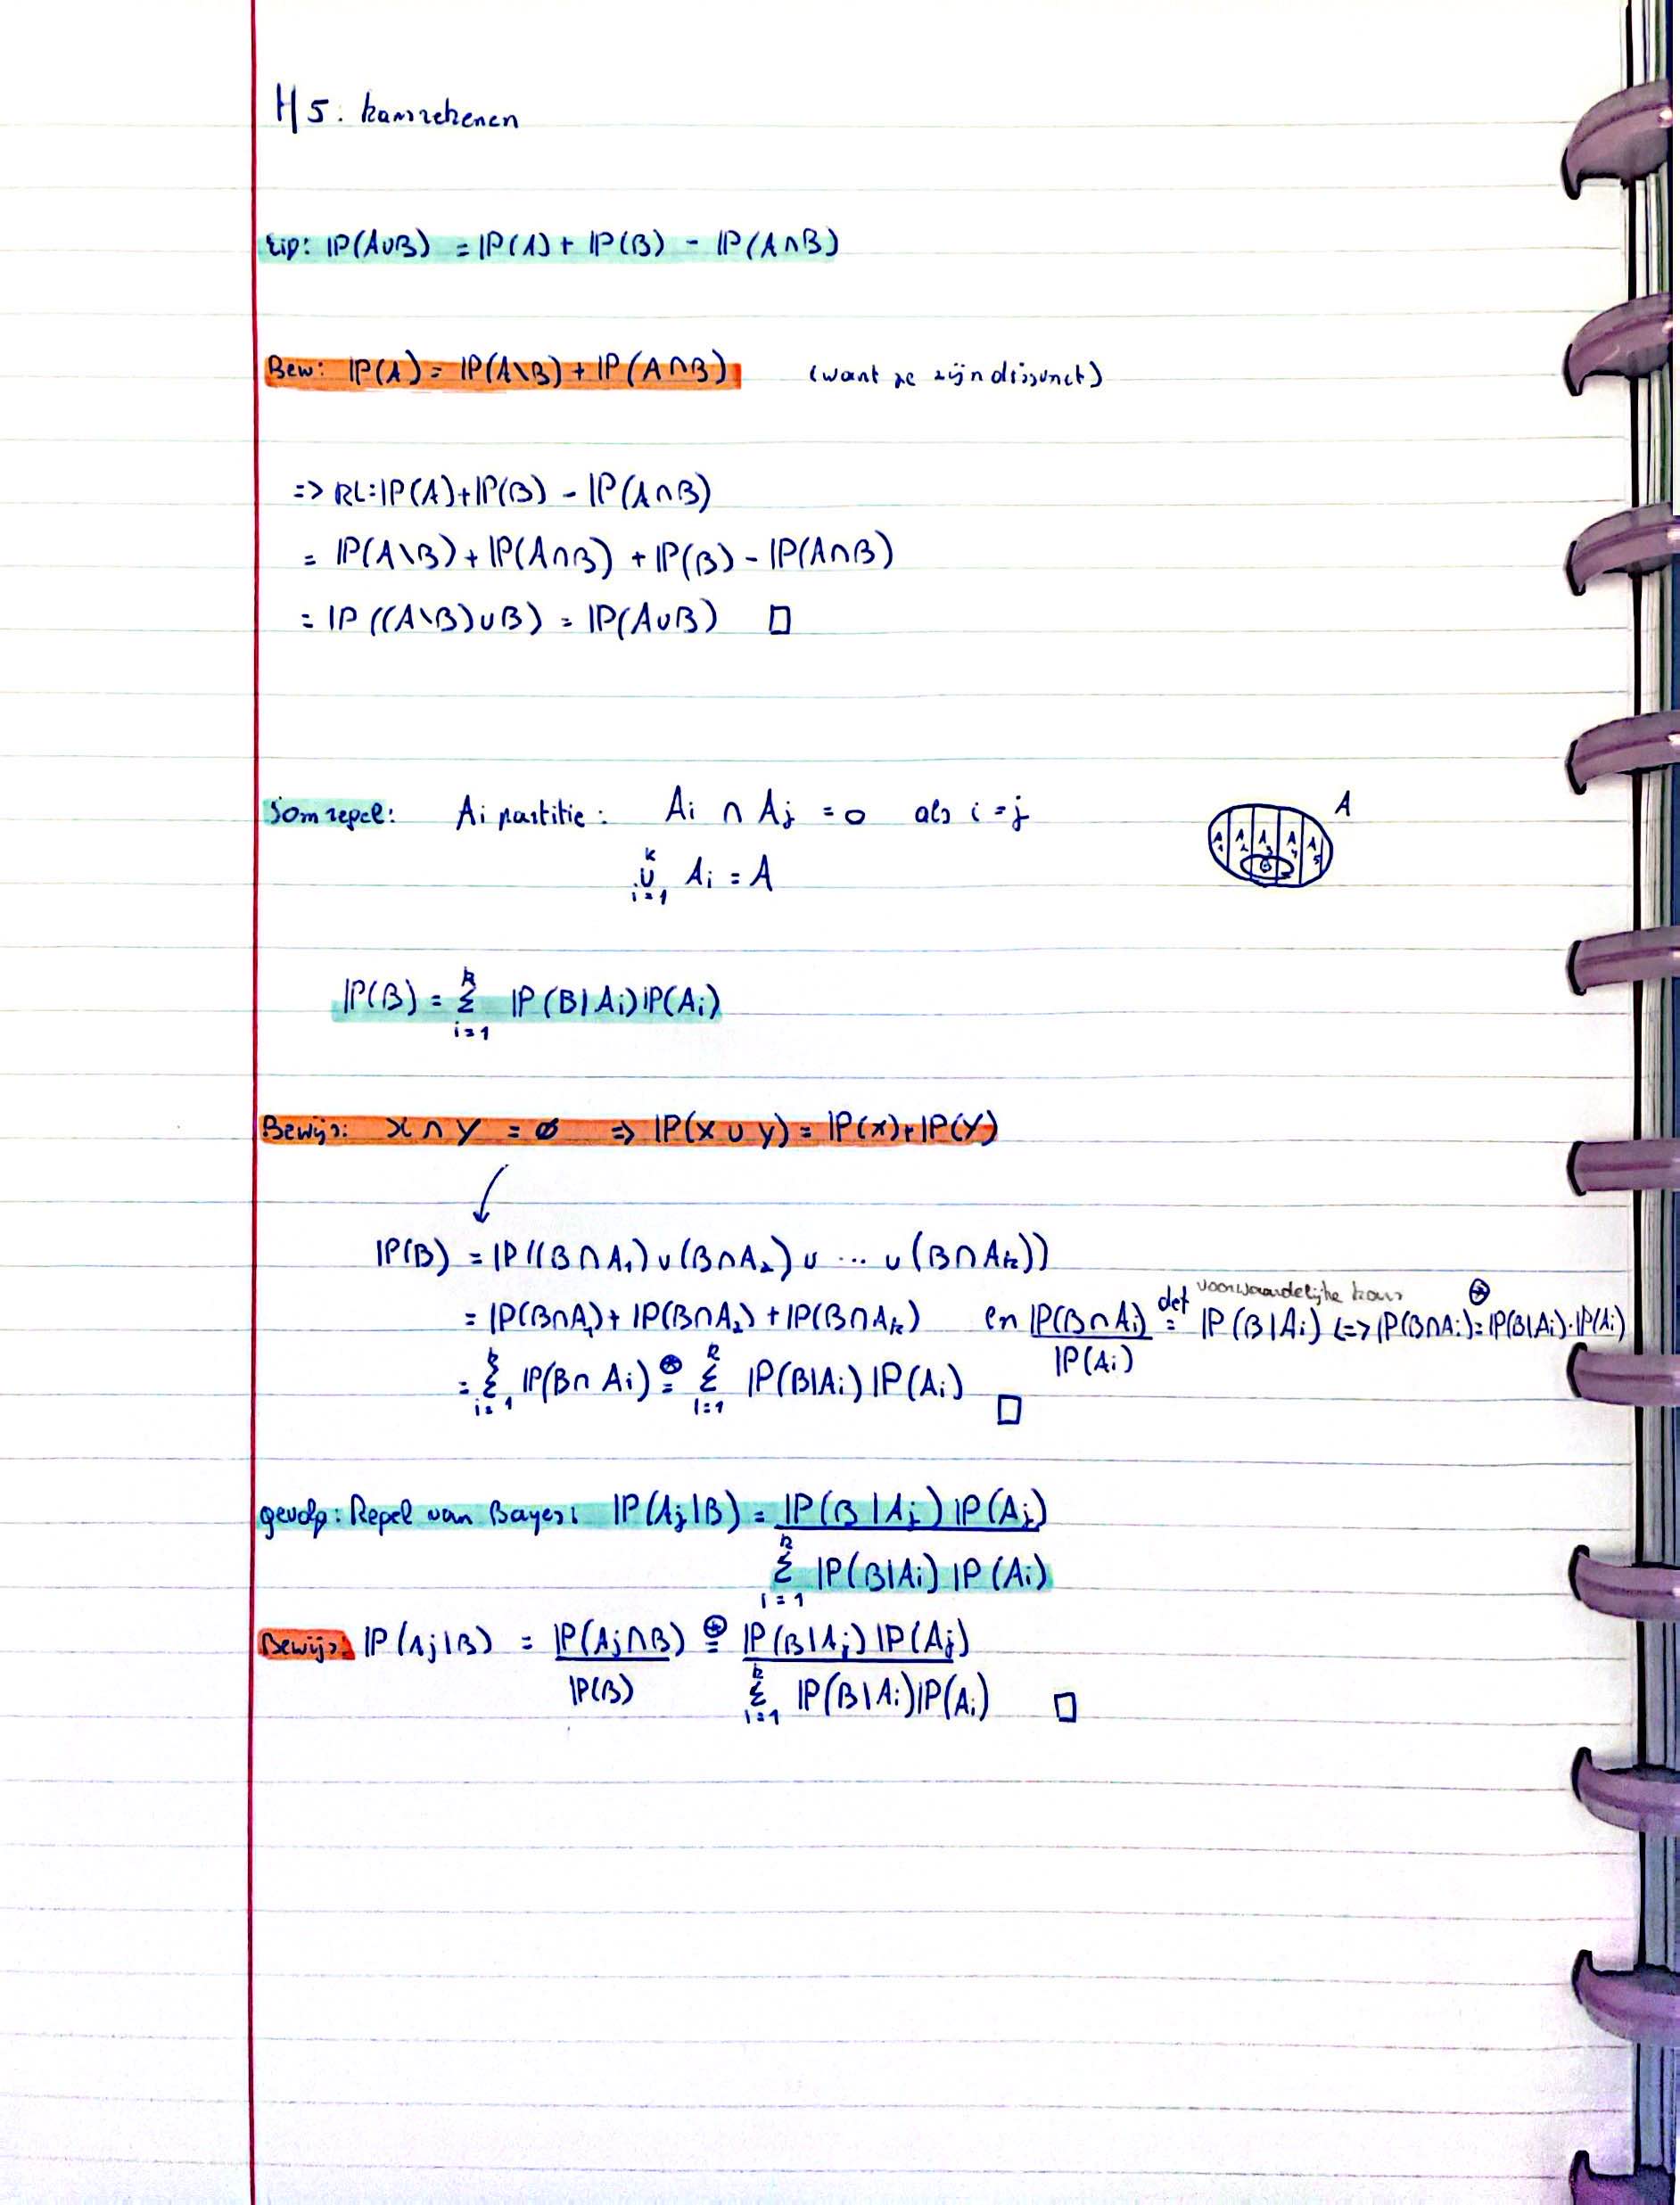 H5: kansrekenen
Eig: ℙ(A∪B) = ℙ(A) + ℙ(B) - ℙ(A∩B)
Bew: ℙ(A) = ℙ(A\B) + ℙ(A∩B) (want ze zijn disjunct)
=> RL: ℙ(A)+ℙ(B) - ℙ(A∩B)
= ℙ(A\B) + ℙ(A∩B) + ℙ(B) - ℙ(A∩B)
= ℙ((A\B)∪B) = ℙ(A∪B) □
Somregel: Ai partitie: Ai ∩ Aj = 0 als i = j
k ∪ i=1 Ai = A
A
A1 A2 A3 A4 A5
B
ℙ(B) = k Σ i=1 ℙ(B|Ai)ℙ(Ai)
Bewijs: X ∩ Y = ∅ => ℙ(X ∪ Y) = ℙ(X)+ℙ(Y)
ℙ(B) = ℙ((B∩A1)∪(B∩A2)∪ ... ∪(B∩Ak))
= ℙ(B∩A1) + ℙ(B∩A2) + ℙ(B∩Ak) en ℙ(B∩Ai)/ℙ(Ai) def voorwaardelijke kans = ℙ(B|Ai) <=> ℙ(B∩Ai) ⊛= ℙ(B|Ai)·ℙ(Ai)
= k Σ i=1 ℙ(B∩Ai) ⊛= k Σ i=1 ℙ(B|Ai) ℙ(Ai) □
gevolg: Regel van Bayes: ℙ(Aj|B) = ℙ(B|Aj) ℙ(Aj) / k Σ i=1 ℙ(B|Ai) ℙ(Ai)
Bewijs: ℙ(Aj|B) = ℙ(Aj∩B)/ℙ(B) ⊛= ℙ(B|Aj) ℙ(Aj) / k Σ i=1 ℙ(B|Ai)ℙ(Ai) □